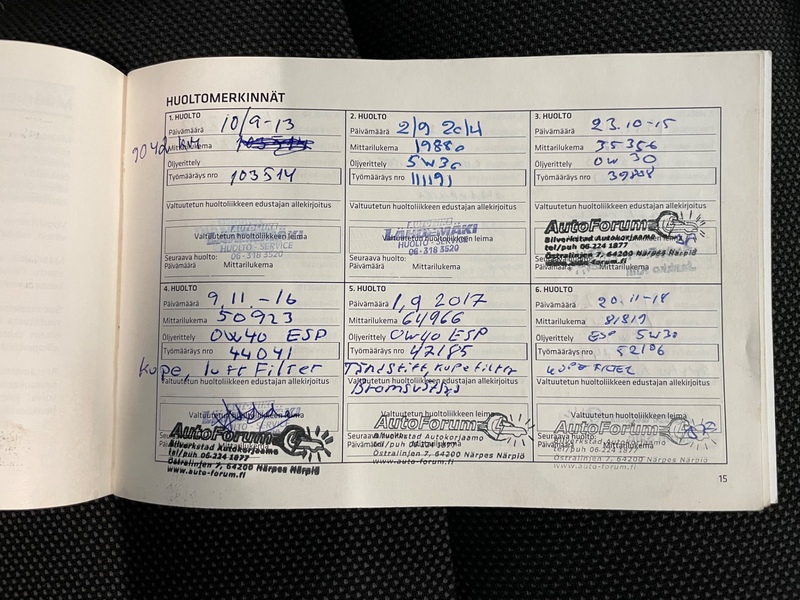 HUOLTOMERKINNÄT
1. HUOLTO
Päivämäärä 10/9-13
9042 km Mittarilukema 103514
Öljyerittely
Työmääräys nro 103514
Valtuutetun huoltoliikkeen edustajan allekirjoitus
Valtuutetun huoltoliikkeen leima
LAHDEMÄKI
HUOLTO - SERVICE
06-318 3520
Seuraava huolto:
Päivämäärä Mittarilukema
2. HUOLTO
Päivämäärä 2/9 2014
Mittarilukema 19880
Öljyerittely 5W30
Työmääräys nro 111191
Valtuutetun huoltoliikkeen edustajan allekirjoitus
Valtuutetun huoltoliikkeen leima
LAHDEMÄKI
HUOLTO - SERVICE
06-318 3520
Seuraava huolto:
Päivämäärä Mittarilukema
3. HUOLTO
Päivämäärä 23.10-15
Mittarilukema 35356
Öljyerittely 0W 30
Työmääräys nro
Valtuutetun huoltoliikkeen edustajan allekirjoitus
AutoForum
Bilverkstad Autokorjaamo
tel/puh 06 224 1877
Östralinjen 7, 64200 Närpes Närpiö
www.auto-forum.fi
4. HUOLTO
Päivämäärä 9.11.-16
Mittarilukema 50923
Öljyerittely 0W40 ESP
Työmääräys nro 44041
Kupe, luft Filter
Valtuutetun huoltoliikkeen edustajan allekirjoitus
Valtuutetun huoltoliikkeen leima
AutoForum
Bilverkstad Autokorjaamo
tel/puh 06 224 1877
Östralinjen 7, 64200 Närpes Närpiö
www.auto-forum.fi
5. HUOLTO
Päivämäärä 1,9 2017
Mittarilukema 64966
Öljyerittely 0W40 ESP
Työmääräys nro 47185
Tändstift, Kupefilter
Valtuutetun huoltoliikkeen edustajan allekirjoitus
Valtuutetun huoltoliikkeen leima
AutoForum
Seuraava huolto:
Bilverkstad Autokorjaamo
Päivämäärä Mittarilukema
tel/puh 06 224 1877
Östralinjen 7, 64200 Närpes Närpiö
www.auto-forum.fi
6. HUOLTO
Päivämäärä 20.11-18
Mittarilukema 81819
Öljyerittely ESP 5W30
Työmääräys nro 52106
KUPE FILTER
Valtuutetun huoltoliikkeen edustajan allekirjoitus
Valtuutetun huoltoliikkeen leima
AutoForum
Seuraava huolto:
Bilverkstad Autokorjaamo
Päivämäärä Mittarilukema
tel/puh 06 224 1877
Östralinjen 7, 64200 Närpes Närpiö
www.auto-forum.fi
15